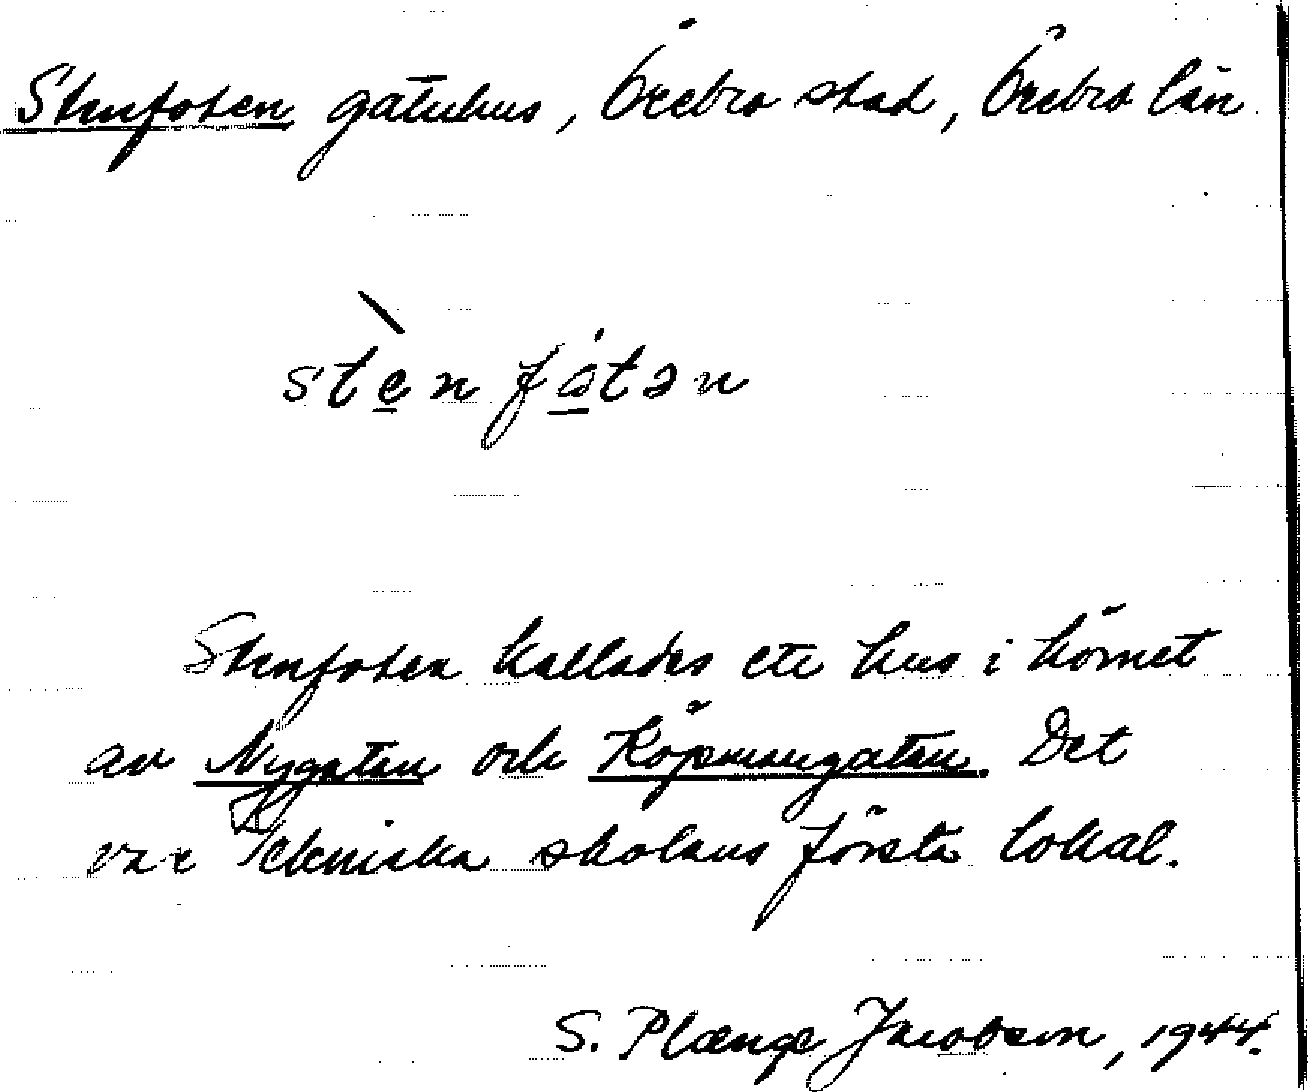 Stenfoten gatuhus, Örebro stad, Örebro län
stènfó̱tən
Stenfoten kallades ett hus i hörnet
av Nygatan och Köpmangatan. Det
var Tekniska skolans första lokal.
S. Plænge Jacobson, 1944.